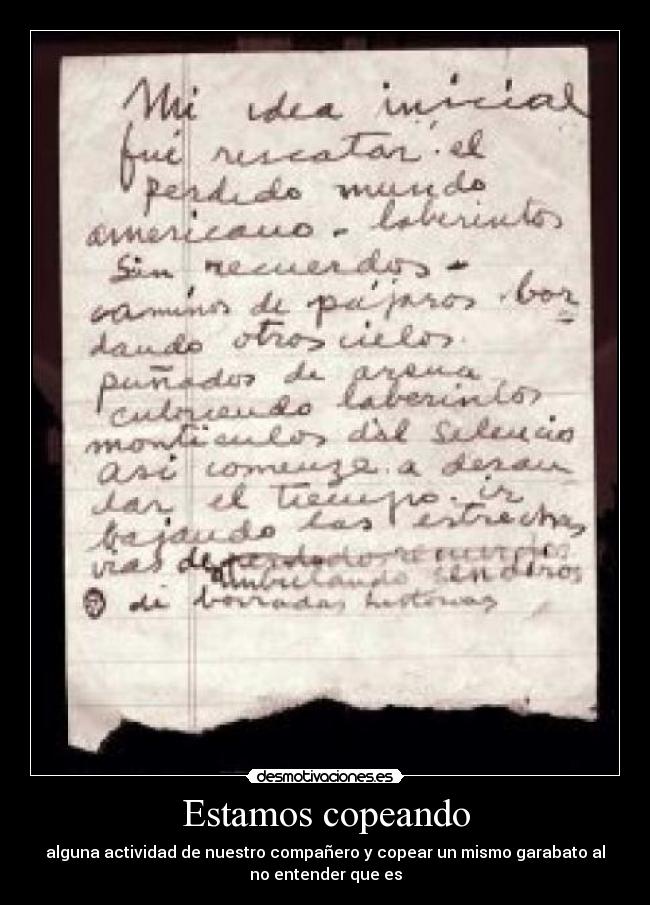 Mi idea inicial
fué rescatar el
perdido mundo
americano - laberintos
sin recuerdos -
caminos de pájaros bor
dando otros cielos.
puñados de arena
cubriendo laberintos
monticulos del silencio
asi comenze a desan
dar el tiempo. ir
bajando las estrechas
vias de
ambulando senderos
de borradas historias
desmotivaciones.es
Estamos copeando
alguna actividad de nuestro compañero y copear un mismo garabato al
no entender que es